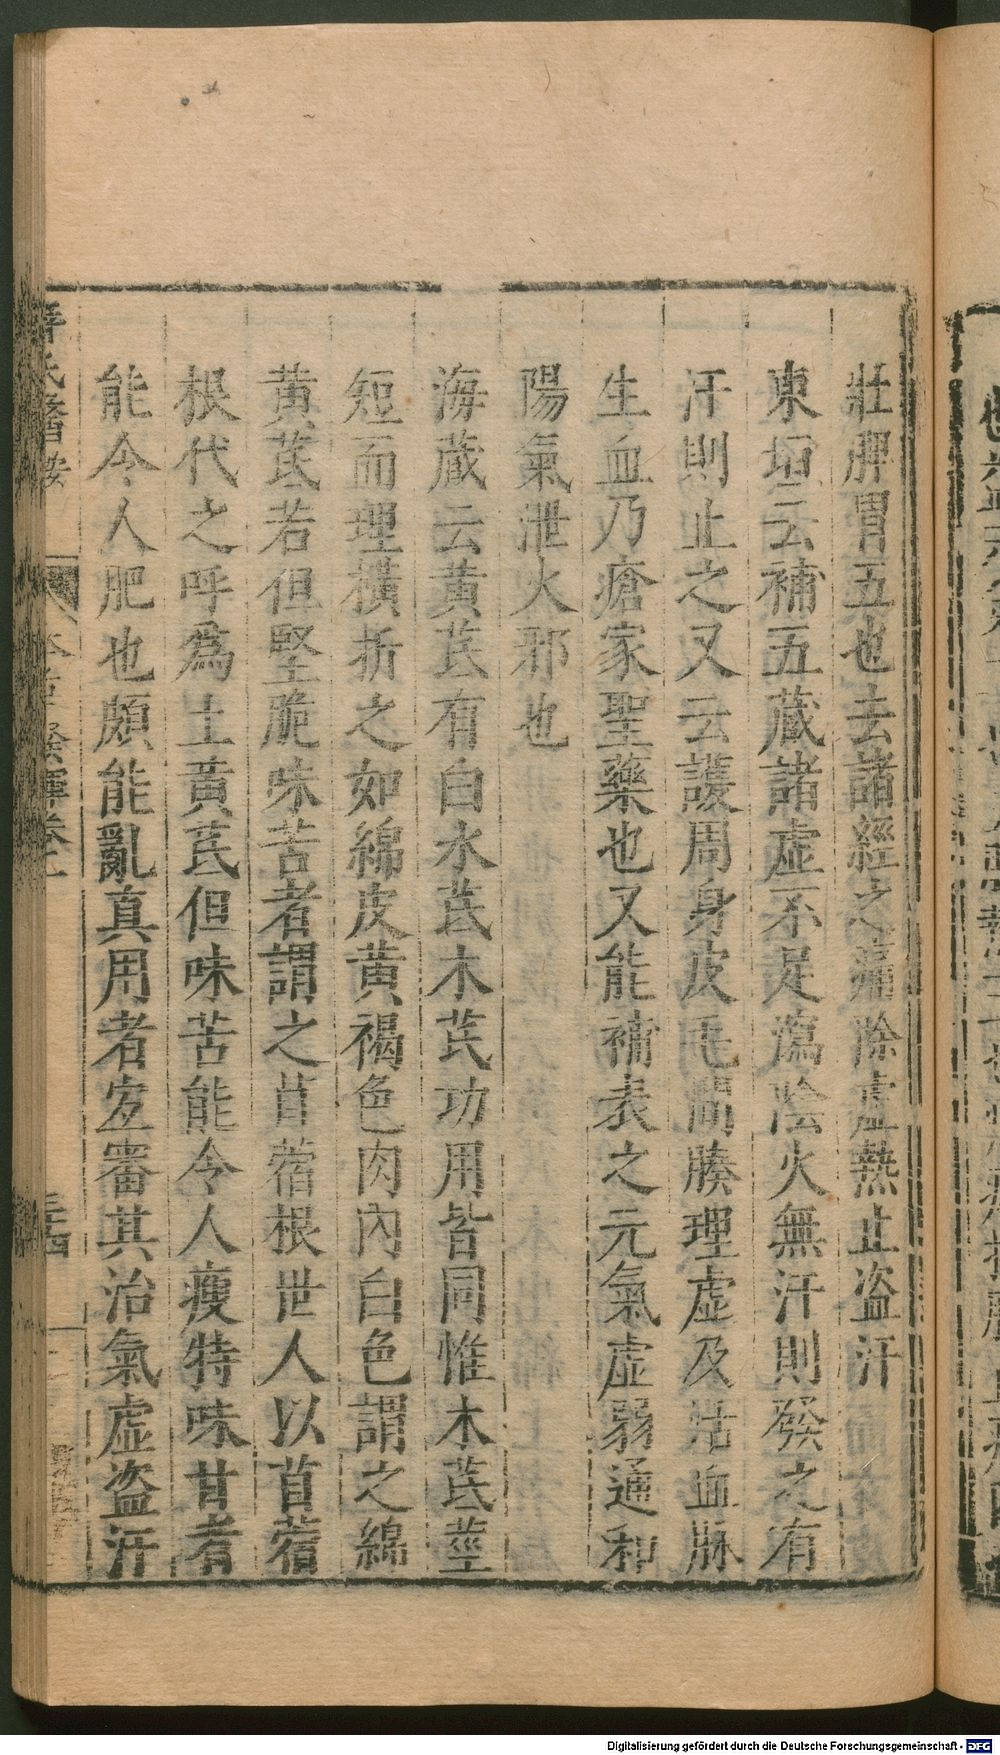 壯脾胃五也去諸經之痛除虛熱止盗汗
東垣云補五藏諸虛不足瀉陰火無汗則發之有
汗則止之又云護周身皮毛間腠理虛及活血脉
生血乃瘡家聖藥也又能補表之元氣虛弱通和
陽氣泄火邪也
海藏云黄芪有白水芪木芪功用皆同惟木芪莖
短而理橫折之如綿皮黄褐色肉内白色謂之綿
黄芪若但堅脆味苦者謂之苜蓿根世人以苜蓿
根代之呼爲土黄芪但味苦能令人瘦特味甘者
能令人肥也頗能亂真用者宜審其治氣虛盗汗
薛氏醫按
本草發揮卷一
三四
Digitalisierung gefördert durch die Deutsche Forschungsgemeinschaft - DFG